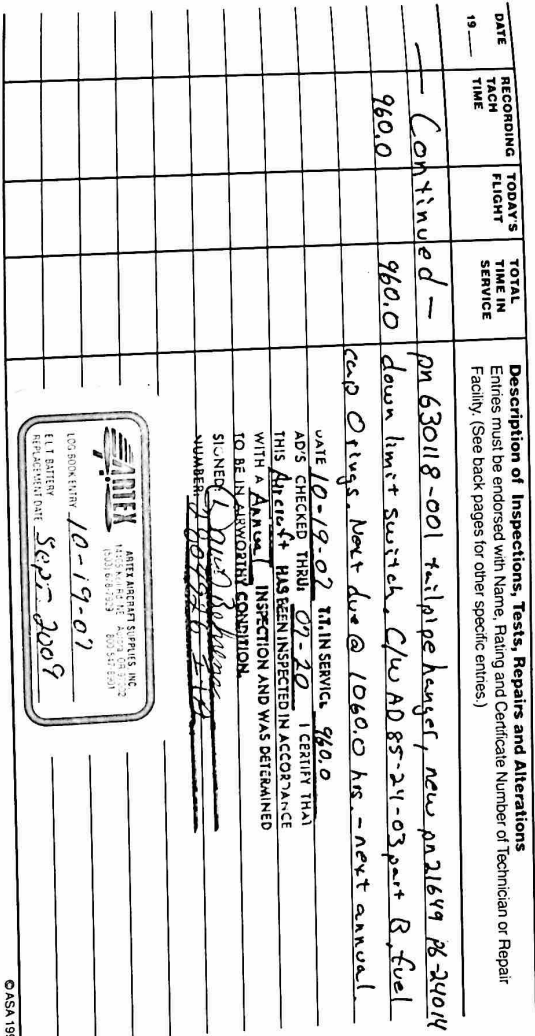 DATE
19
RECORDING TACH TIME
TODAY'S FLIGHT
TOTAL TIME IN SERVICE
Description of Inspections, Tests, Repairs and Alterations
Entries must be endorsed with Name, Rating and Certificate Number of Technician or Repair
Facility. (See back pages for other specific entries.)
— Continued — pn 630118-001 tailpipe hanger, new pn 21649 pb-24014
960.0 960.0 down limit switch, C/W AD 85-24-03 part B, fuel
cap O rings. Next due @ 1060.0 hrs. - next annual.
DATE 10-19-07 T.T. IN SERVICE 960.0
AD'S CHECKED THRU: 07-20 I CERTIFY THAT
THIS Aircraft HAS BEEN INSPECTED IN ACCORDANCE
WITH A Annual INSPECTION AND WAS DETERMINED
TO BE IN AIRWORTHY CONDITION.
SIGNED: David
NUMBER:
ARTEX
ARTEX AIRCRAFT SUPPLIES, INC.
LOG BOOK ENTRY 10-19-07
E.L.T BATTERY
REPLACEMENT DATE Sept 2009
© ASA 199